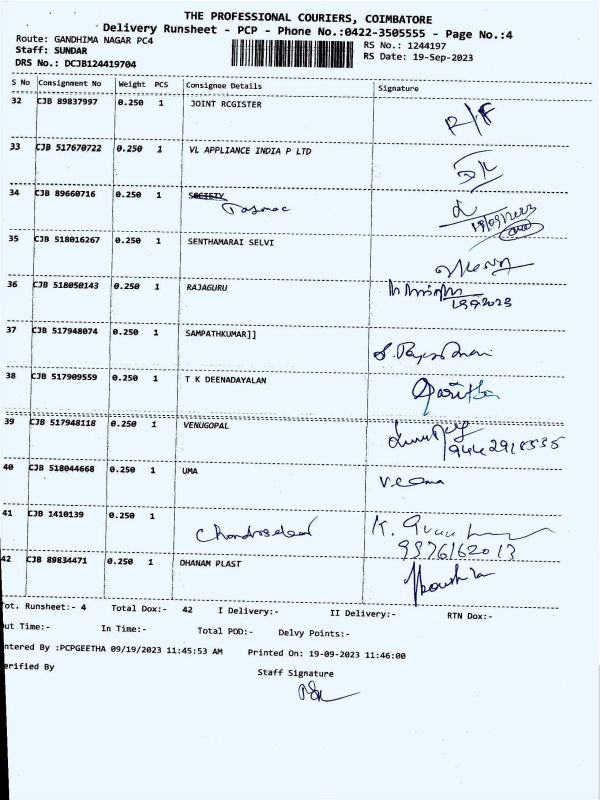 THE PROFESSIONAL COURIERS, COIMBATORE
Delivery Runsheet - PCP - Phone No.:0422-3505555 - Page No.:4
Route: GANDHIMA NAGAR PC4
RS No.: 1244197
Staff: SUNDAR
RS Date: 19-Sep-2023
DRS No.: DCJB124419704
S No Consignment No Weight PCS Consignee Details Signature
32 CJB 89837997 0.250 1 JOINT RCGISTER
33 CJB 517670722 0.250 1 VL APPLIANCE INDIA P LTD
34 CJB 89660716 0.250 1 SOCIETY
Tasmac
19/09/2023
35 CJB 518016267 0.250 1 SENTHAMARAI SELVI
36 CJB 518050143 0.250 1 RAJAGURU
37 CJB 517948074 0.250 1 SAMPATHKUMAR]]
38 CJB 517909559 0.250 1 T K DEENADAYALAN
39 CJB 517948118 0.250 1 VENUGOPAL
40 CJB 518044668 0.250 1 UMA
41 CJB 1410139 0.250 1
42 CJB 89834471 0.250 1 DHANAM PLAST
Tot. Runsheet:- 4 Total Dox:- 42 I Delivery:- II Delivery:- RTN Dox:-
ut Time:- In Time:- Total POD:- Delvy Points:-
ntered By :PCPGEETHA 09/19/2023 11:45:53 AM Printed On: 19-09-2023 11:46:00
erified By
Staff Signature